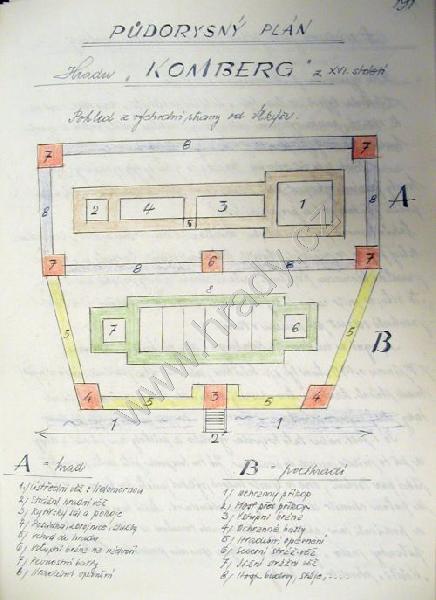 191
PŮDORYSNÝ PLÁN
Hradu „KOMBERG" z XVI. století
Pohled z východní strany od
7 8 7
8 2 4 5 3 1 8 A
7 8 6 8 7
8
5 7 6 5 B
4 5 3 5 4
1 2 1
www.hrady.cz
A - hrad
1) Ústřední věž
2) Strážní hradní věž
3) Rytířský sál a pokoje
4)
5)
6) Vstupní brána na nádvoří
7) bašty
8) Hradební opevnění
B - podhradí
1) Ochranný příkop
2) Most přes příkop
3) Vstupní brána
4) Ochranné bašty
5) opevnění
6)
7) strážní věž
8) budovy, stáje,